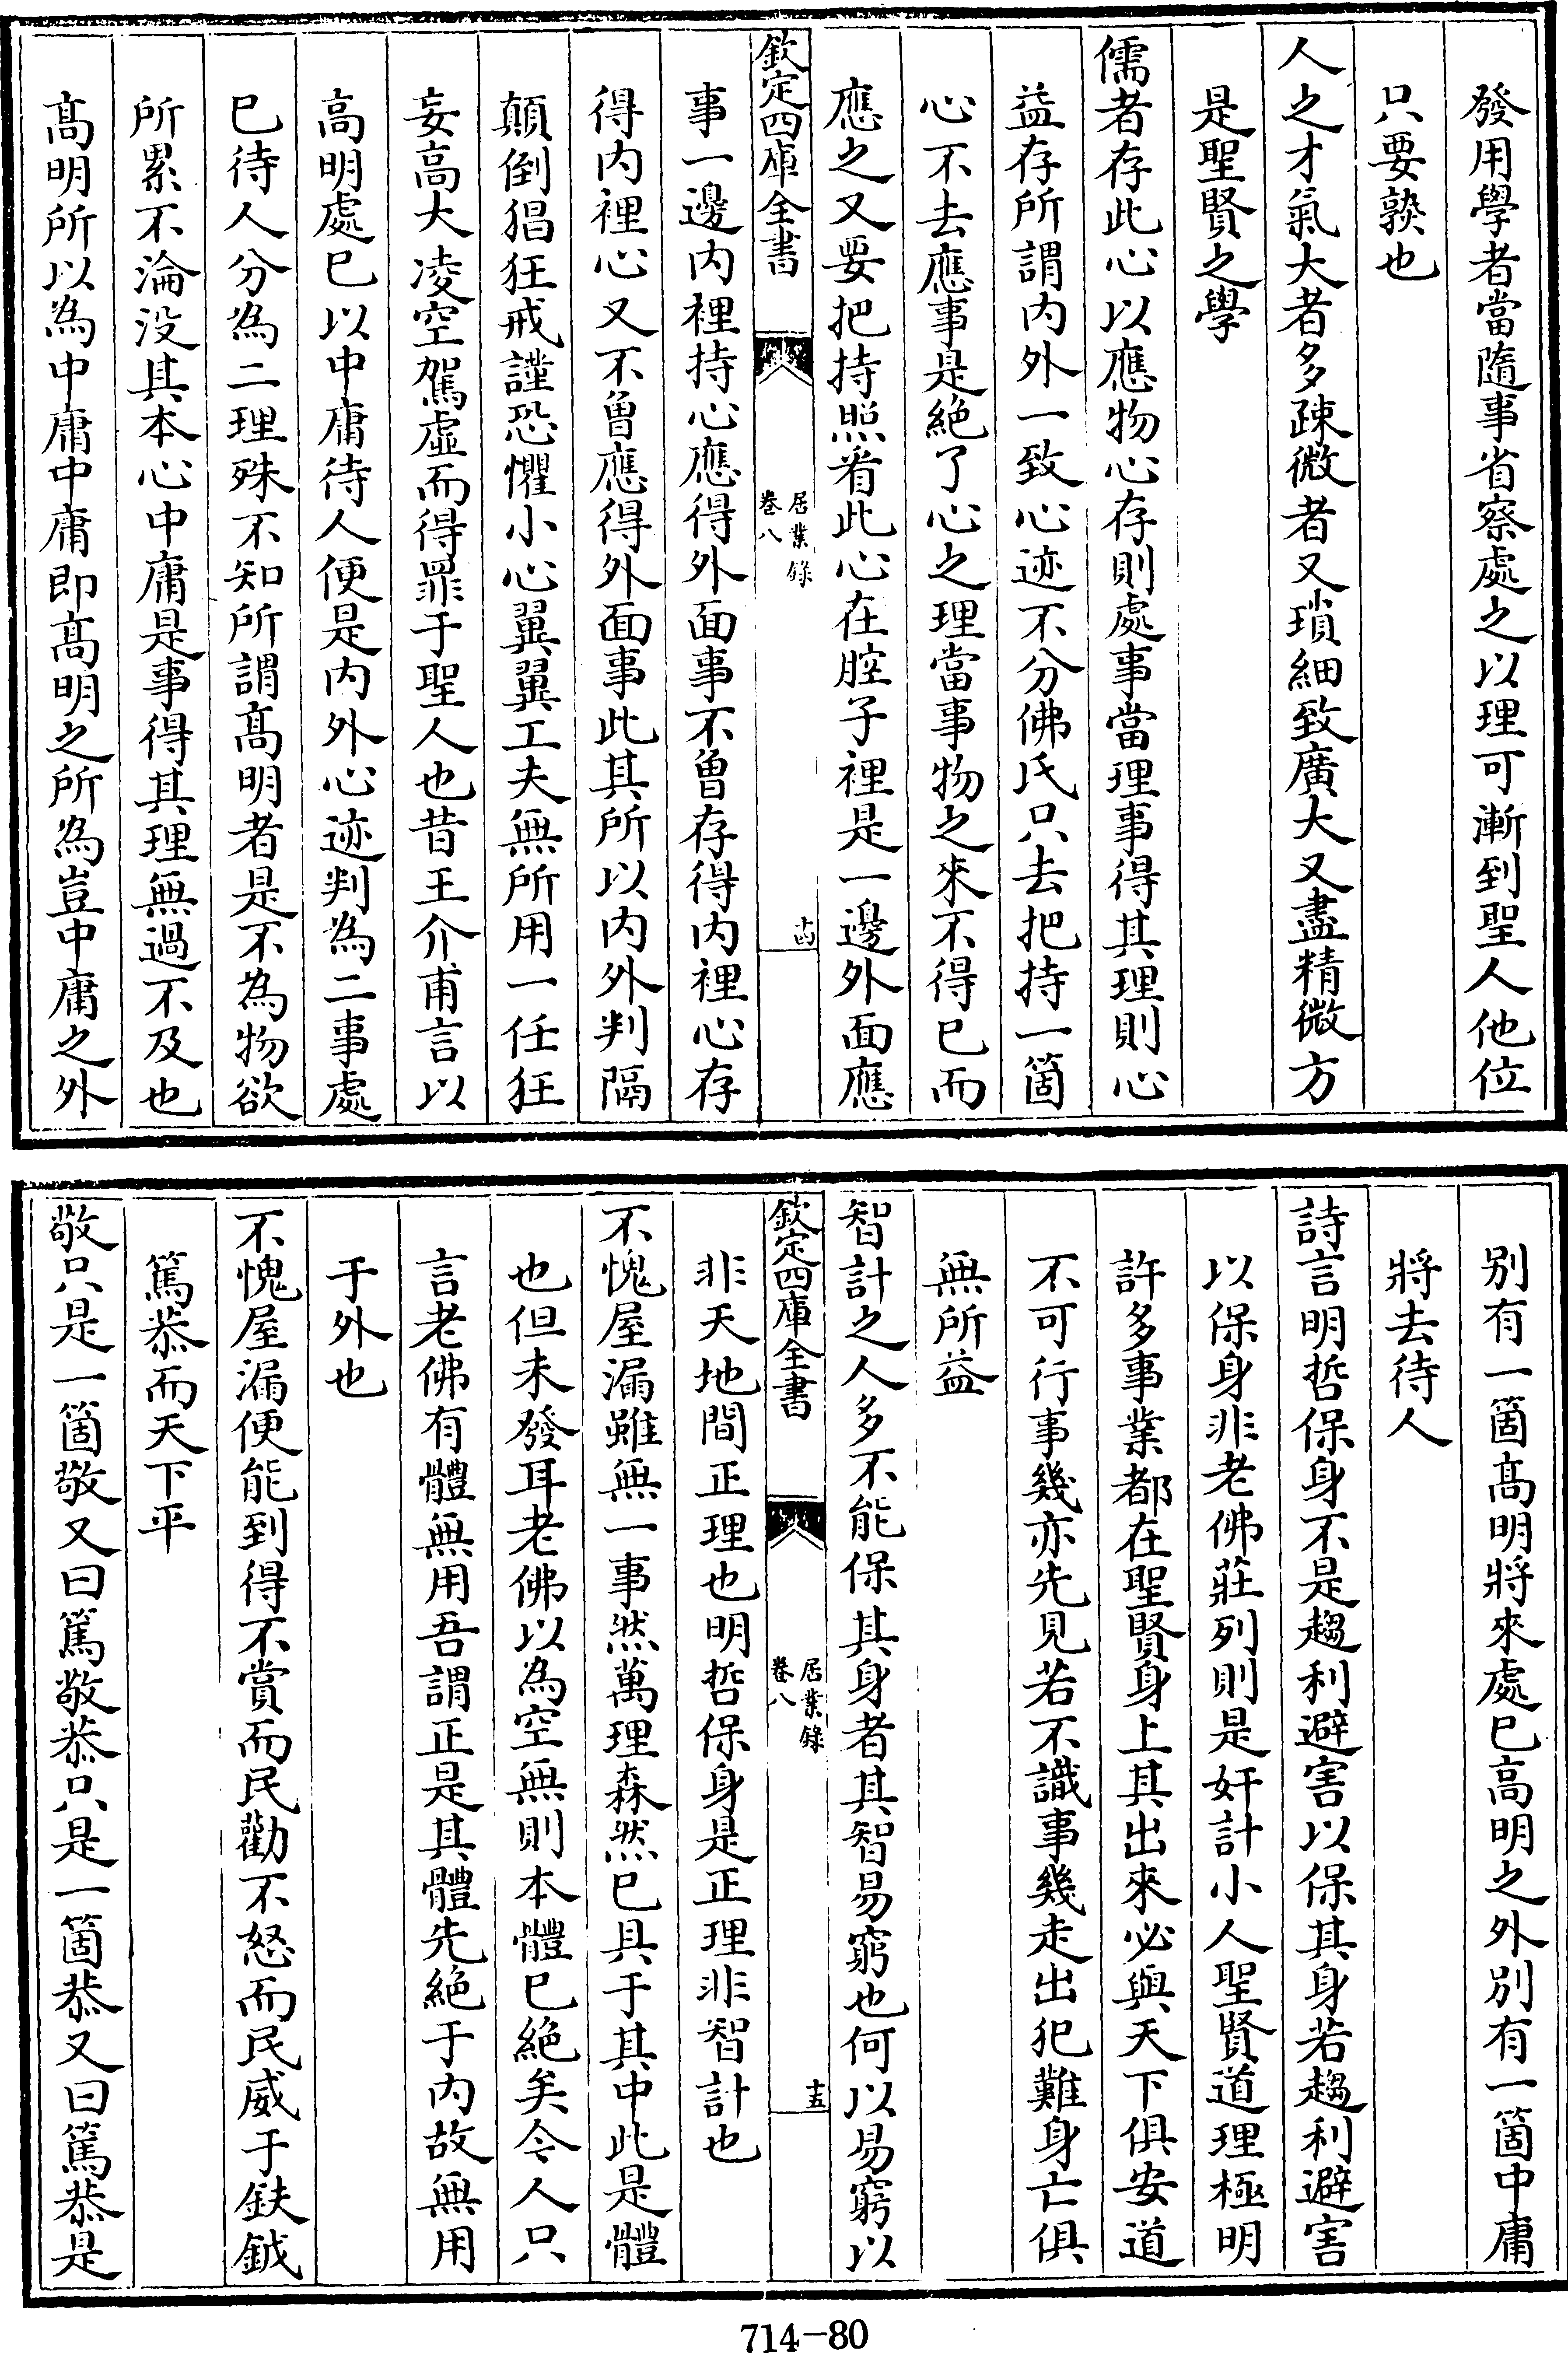 發用學者當隨事省察處之以理可漸到聖人他位
只要孰也
人之才氣大者多疎微者又瑣細致廣大又盡精微方
是聖賢之學
儒者存此心以應物心存則處事當理事得其理則心
益存所謂内外一致心迹不分佛氏只去把持一箇
心不去應事是絶了心之理當事物之來不得已而
應之又要把持照㸔此心在腔子裡是一邊外面應
欽定四庫全書
居業錄
卷八
十四
事一邊内裡持心應得外面事不曾存得内裡心存
得内裡心又不曽應得外面事此其所以内外判隔
顛倒猖狂戒謹恐懼小心翼翼工夫無所用一任狂
妄高大凌空駕虚而得罪于聖人也昔王介甫言以
高明處已以中庸待人便是内外心迹判為二事處
已待人分為二理殊不知所謂髙明者是不為物欲
所累不淪没其本心中庸是事得其理無過不及也
髙明所以為中庸中庸即髙明之所為豈中庸之外
别有一箇髙明將來處已高明之外别有一箇中庸
將去待人
詩言明哲保身不是趨利避害以保其身若趨利避害
以保身非老佛莊列則是奸計小人聖賢道理極明
許多事業都在聖賢身上其出來必與天下俱安道
不可行事幾亦先見若不識事幾走出犯難身亡俱
無所益
智計之人多不能保其身者其智易窮也何以易窮以
欽定四庫全書
居業錄
卷八
十五
非天地間正理也明哲保身是正理非智計也
不愧屋漏雖無一事然萬理森然已具于其中此是體
也但未發耳老佛以為空無則本體已絶矣今人只
言老佛有體無用吾謂正是其體先絶于内故無用
于外也
不愧屋漏便能到得不賞而民勸不怒而民威于鈇鉞
篤恭而天下平
敬只是一箇敬又曰篤敬恭只是一箇恭又曰篤恭是
714-80